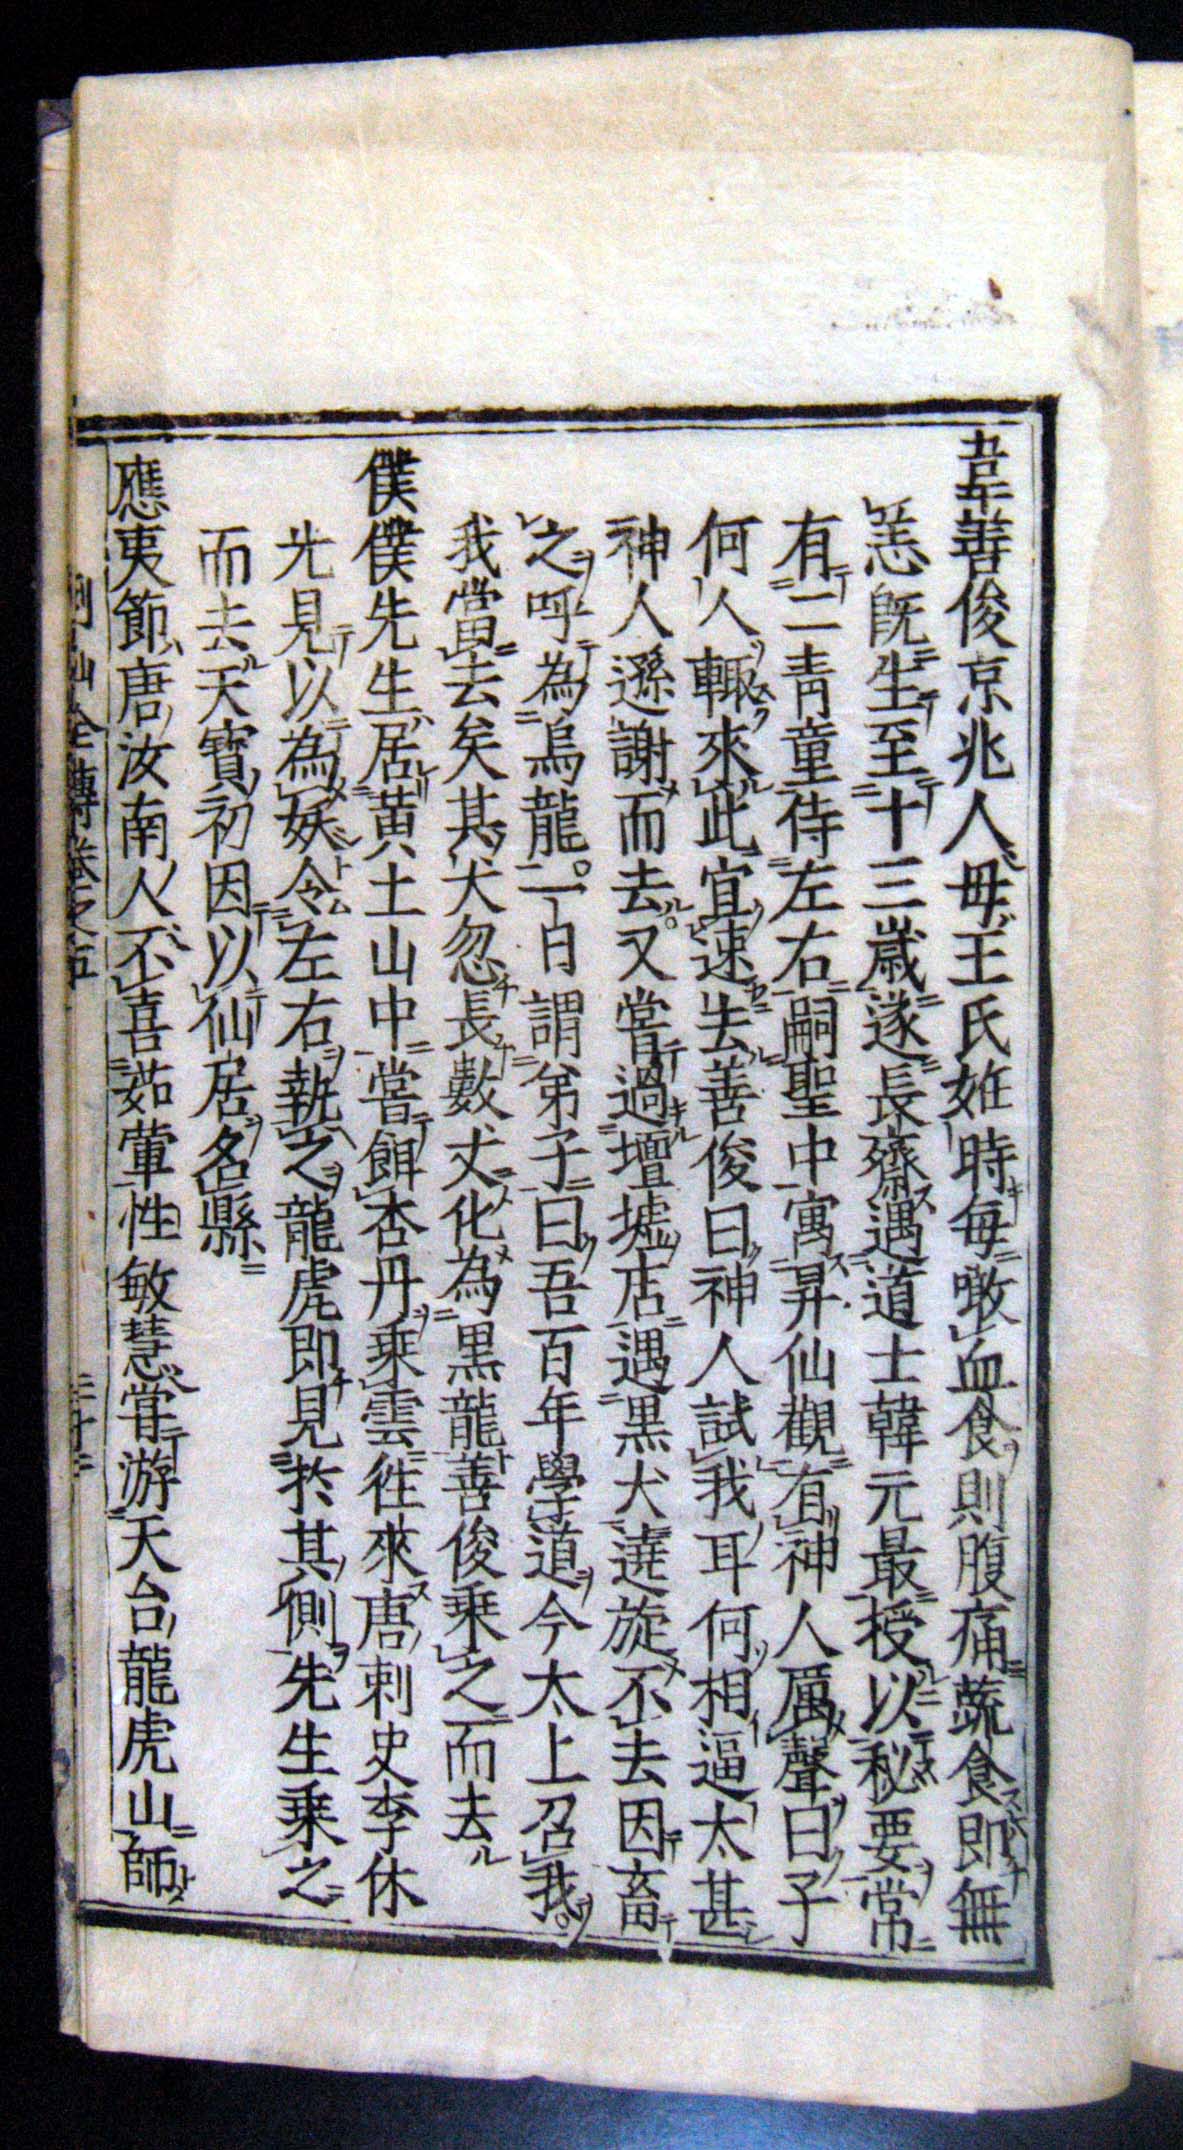 韋善俊京兆人母王氏姙時每噉血食則腹痛蔬食即無
恙既生至十三歲遂長齋遇道士韓元最授以秘要常
有二青童侍左右嗣聖中寓昇仙觀有神人厲聲曰子
何人輙來此宜速去善俊曰神人試我耳何相逼太甚
神人遜謝而去又嘗過壇墟店遇黒犬遶旋不去因畜
之呼為烏龍一日謂弟子曰吾百年學道今太上召我
我當去矣其犬忽長數丈化為黒龍善俊乘之而去
僕僕先生居黄土山中嘗餌杏丹乘雲徃來唐刺史李休
光見以為妖令左右執之龍虎即見於其側先生乘之
而去天寶初因以仙居名縣
應夷節唐汝南人不喜茹葷性敏慧甞游天台龍虎山師
列仙全傳卷之五 二十三